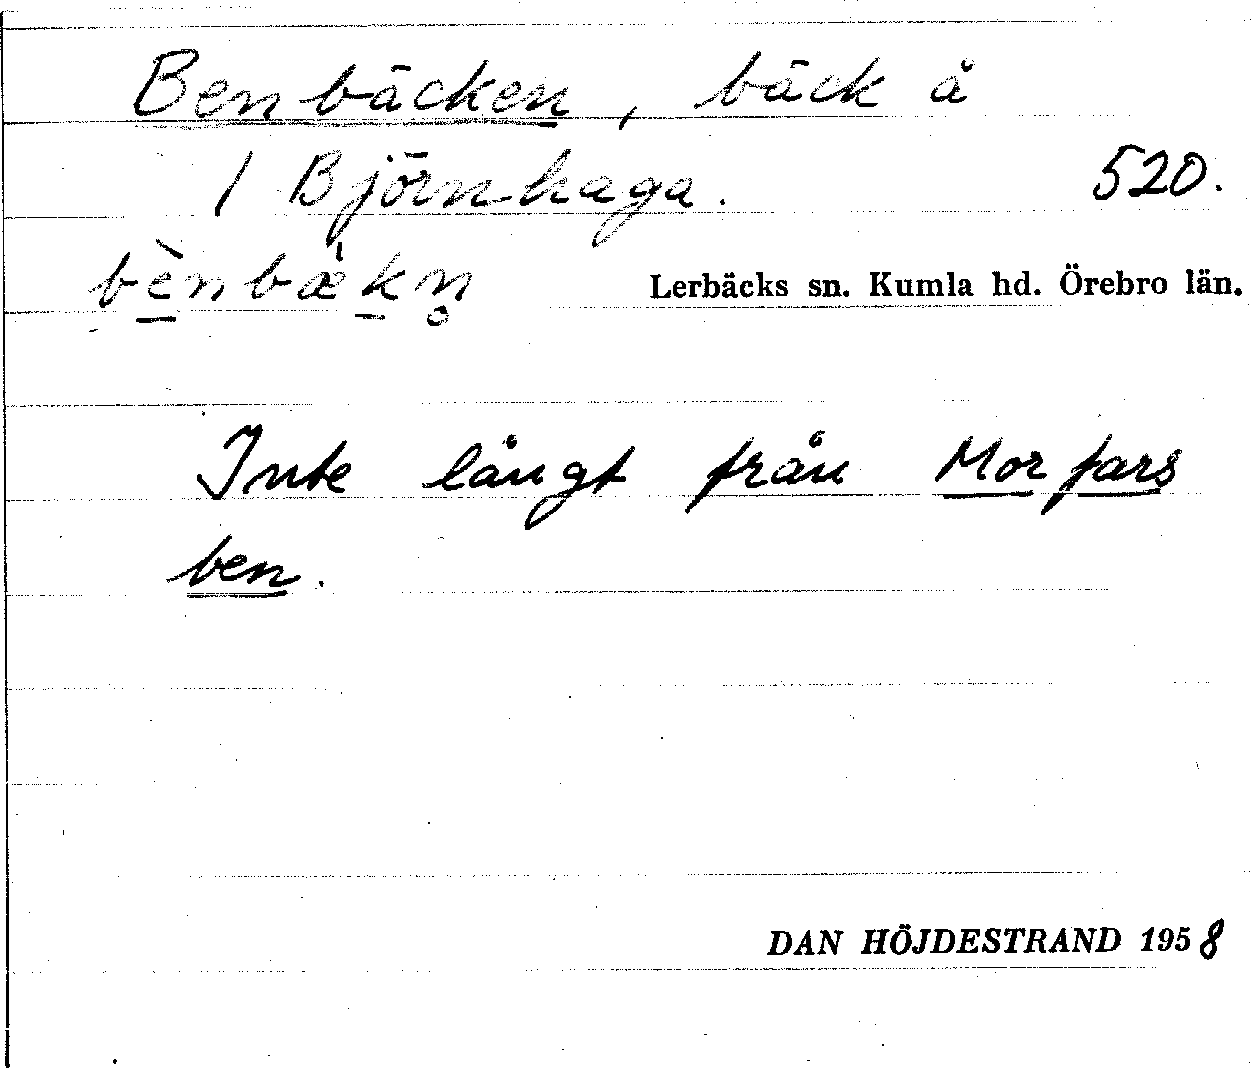 Benbäcken, bäck å
1 Björnhaga. 520.
bènbæ̀kn̥ Lerbäcks sn. Kumla hd. Örebro län.
Inte långt från Morfars
ben.
DAN HÖJDESTRAND 1958